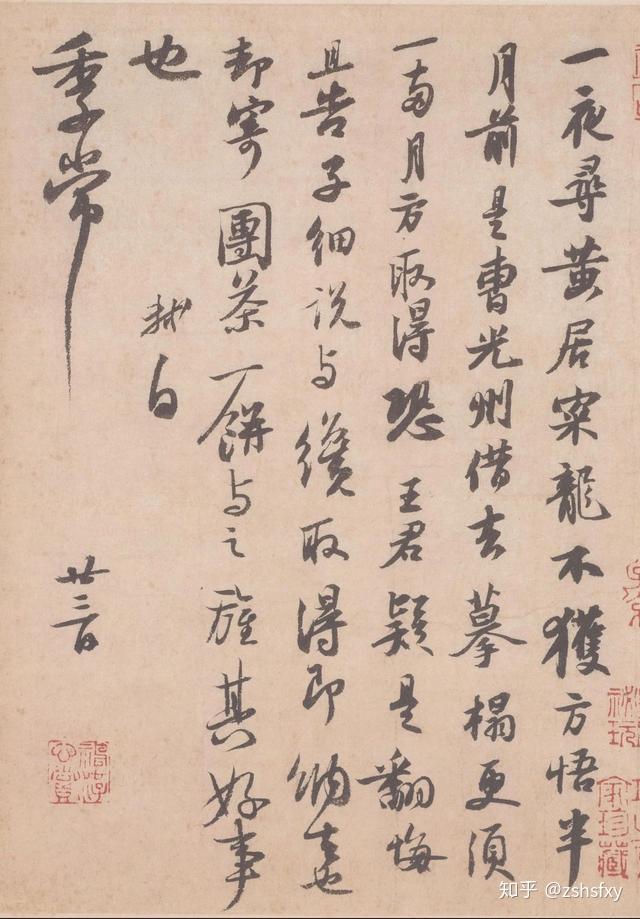 一夜尋黄居寀龍不獲方悟半
月前是曹光州借去摹榻更須
一兩月方取得恐王君疑是翻悔
且告子細說与纔取得即納去也
却寄團茶一餅与之旌其好事
也
軾白
季常
廿三日
知乎 @zshsfxy